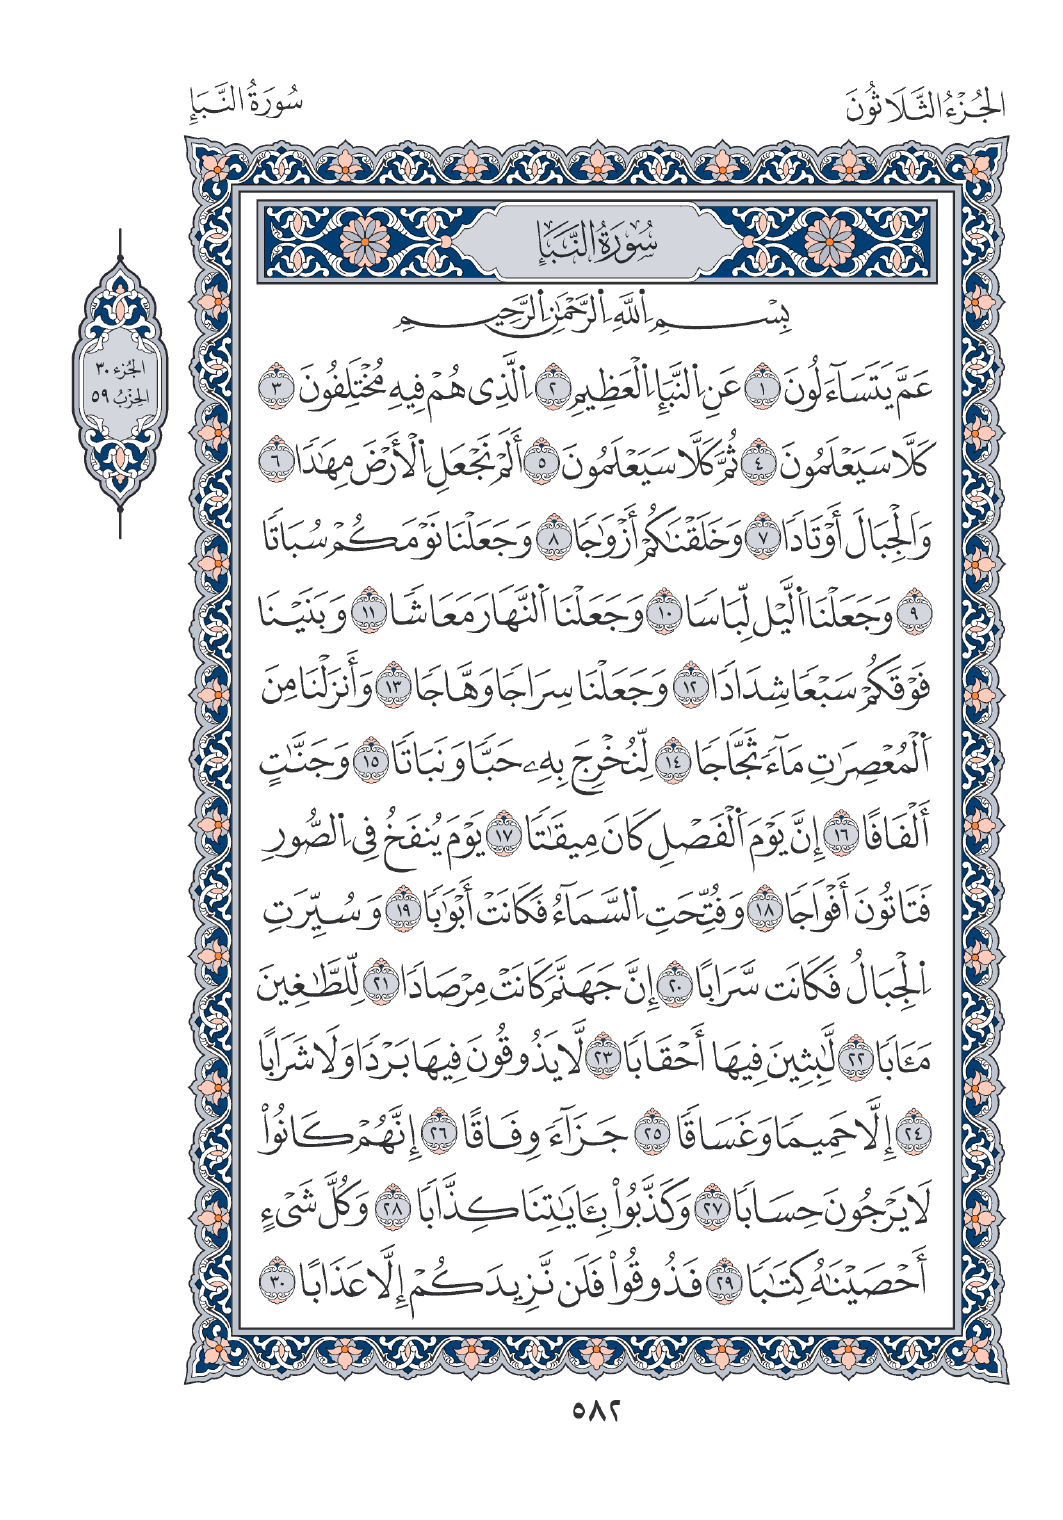 الجُزْءُ الثَّلَاثُونَ
سُورَةُ النَّبَإِ
سُورَةُ النَّبَإِ
بِسْمِ اِللَّهِ اِلرَّحْمَٰنِ اِلرَّحِيمِ
الجُزء ٣٠
الحِزْبُ ٥٩
عَمَّ يَتَسَآءَلُونَ ١ عَنِ اِلنَّبَإِ اِلْعَظِيمِ ٢ اِلَّذِي هُمْ فِيهِ مُخْتَلِفُونَ ٣
كَلَّا سَيَعْلَمُونَ ٤ ثُمَّ كَلَّا سَيَعْلَمُونَ ٥ أَلَمْ نَجْعَلِ اِلْأَرْضَ مِهَٰدٗا ٦
وَاَلْجِبَالَ أَوْتَادٗا ٧ وَخَلَقْنَٰكُمْ أَزْوَٰجٗا ٨ وَجَعَلْنَا نَوْمَكُمْ سُبَاتٗا
٩ وَجَعَلْنَا اَلَّيْلَ لِبَاسٗا ١٠ وَجَعَلْنَا اَلنَّهَارَ مَعَاشٗا ١١ وَبَنَيْنَا
فَوْقَكُمْ سَبْعٗا شِدَادٗا ١٢ وَجَعَلْنَا سِرَاجٗا وَهَّاجٗا ١٣ وَأَنزَلْنَا مِنَ
اَلْمُعْصِرَٰتِ مَآءٗ ثَجَّاجٗا ١٤ لِّنُخْرِجَ بِهِۦ حَبّٗا وَنَبَاتٗا ١٥ وَجَنَّٰتٍ
أَلْفَافًا ١٦ إِنَّ يَوْمَ اَلْفَصْلِ كَانَ مِيقَٰتٗا ١٧ يَوْمَ يُنفَخُ فِي اِلصُّورِ
فَتَاتُونَ أَفْوَاجٗا ١٨ وَفُتِّحَتِ اِلسَّمَآءُ فَكَانَتْ أَبْوَٰبٗا ١٩ وَسُيِّرَتِ
اِلْجِبَالُ فَكَانَت سَّرَابًا ٢٠ إِنَّ جَهَنَّمَ كَانَتْ مِرْصَادٗا ٢١ لِّلطَّٰغِينَ
مَـَٔابٗا ٢٢ لَّٰبِثِينَ فِيهَا أَحْقَابٗا ٢٣ لَّا يَذُوقُونَ فِيهَا بَرْدٗا وَلَا شَرَابًا
٢٤ إِلَّا حَمِيمٗا وَغَسَاقٗا ٢٥ جَزَآءٗ وِفَاقًا ٢٦ إِنَّهُمْ كَانُواْ
لَا يَرْجُونَ حِسَابٗا ٢٧ وَكَذَّبُواْ بِـَٔايَٰتِنَا كِذَّابٗا ٢٨ وَكُلَّ شَيْءٍ
أَحْصَيْنَٰهُ كِتَٰبٗا ٢٩ فَذُوقُواْ فَلَن نَّزِيدَكُمْ إِلَّا عَذَابًا ٣٠
٥٨٢